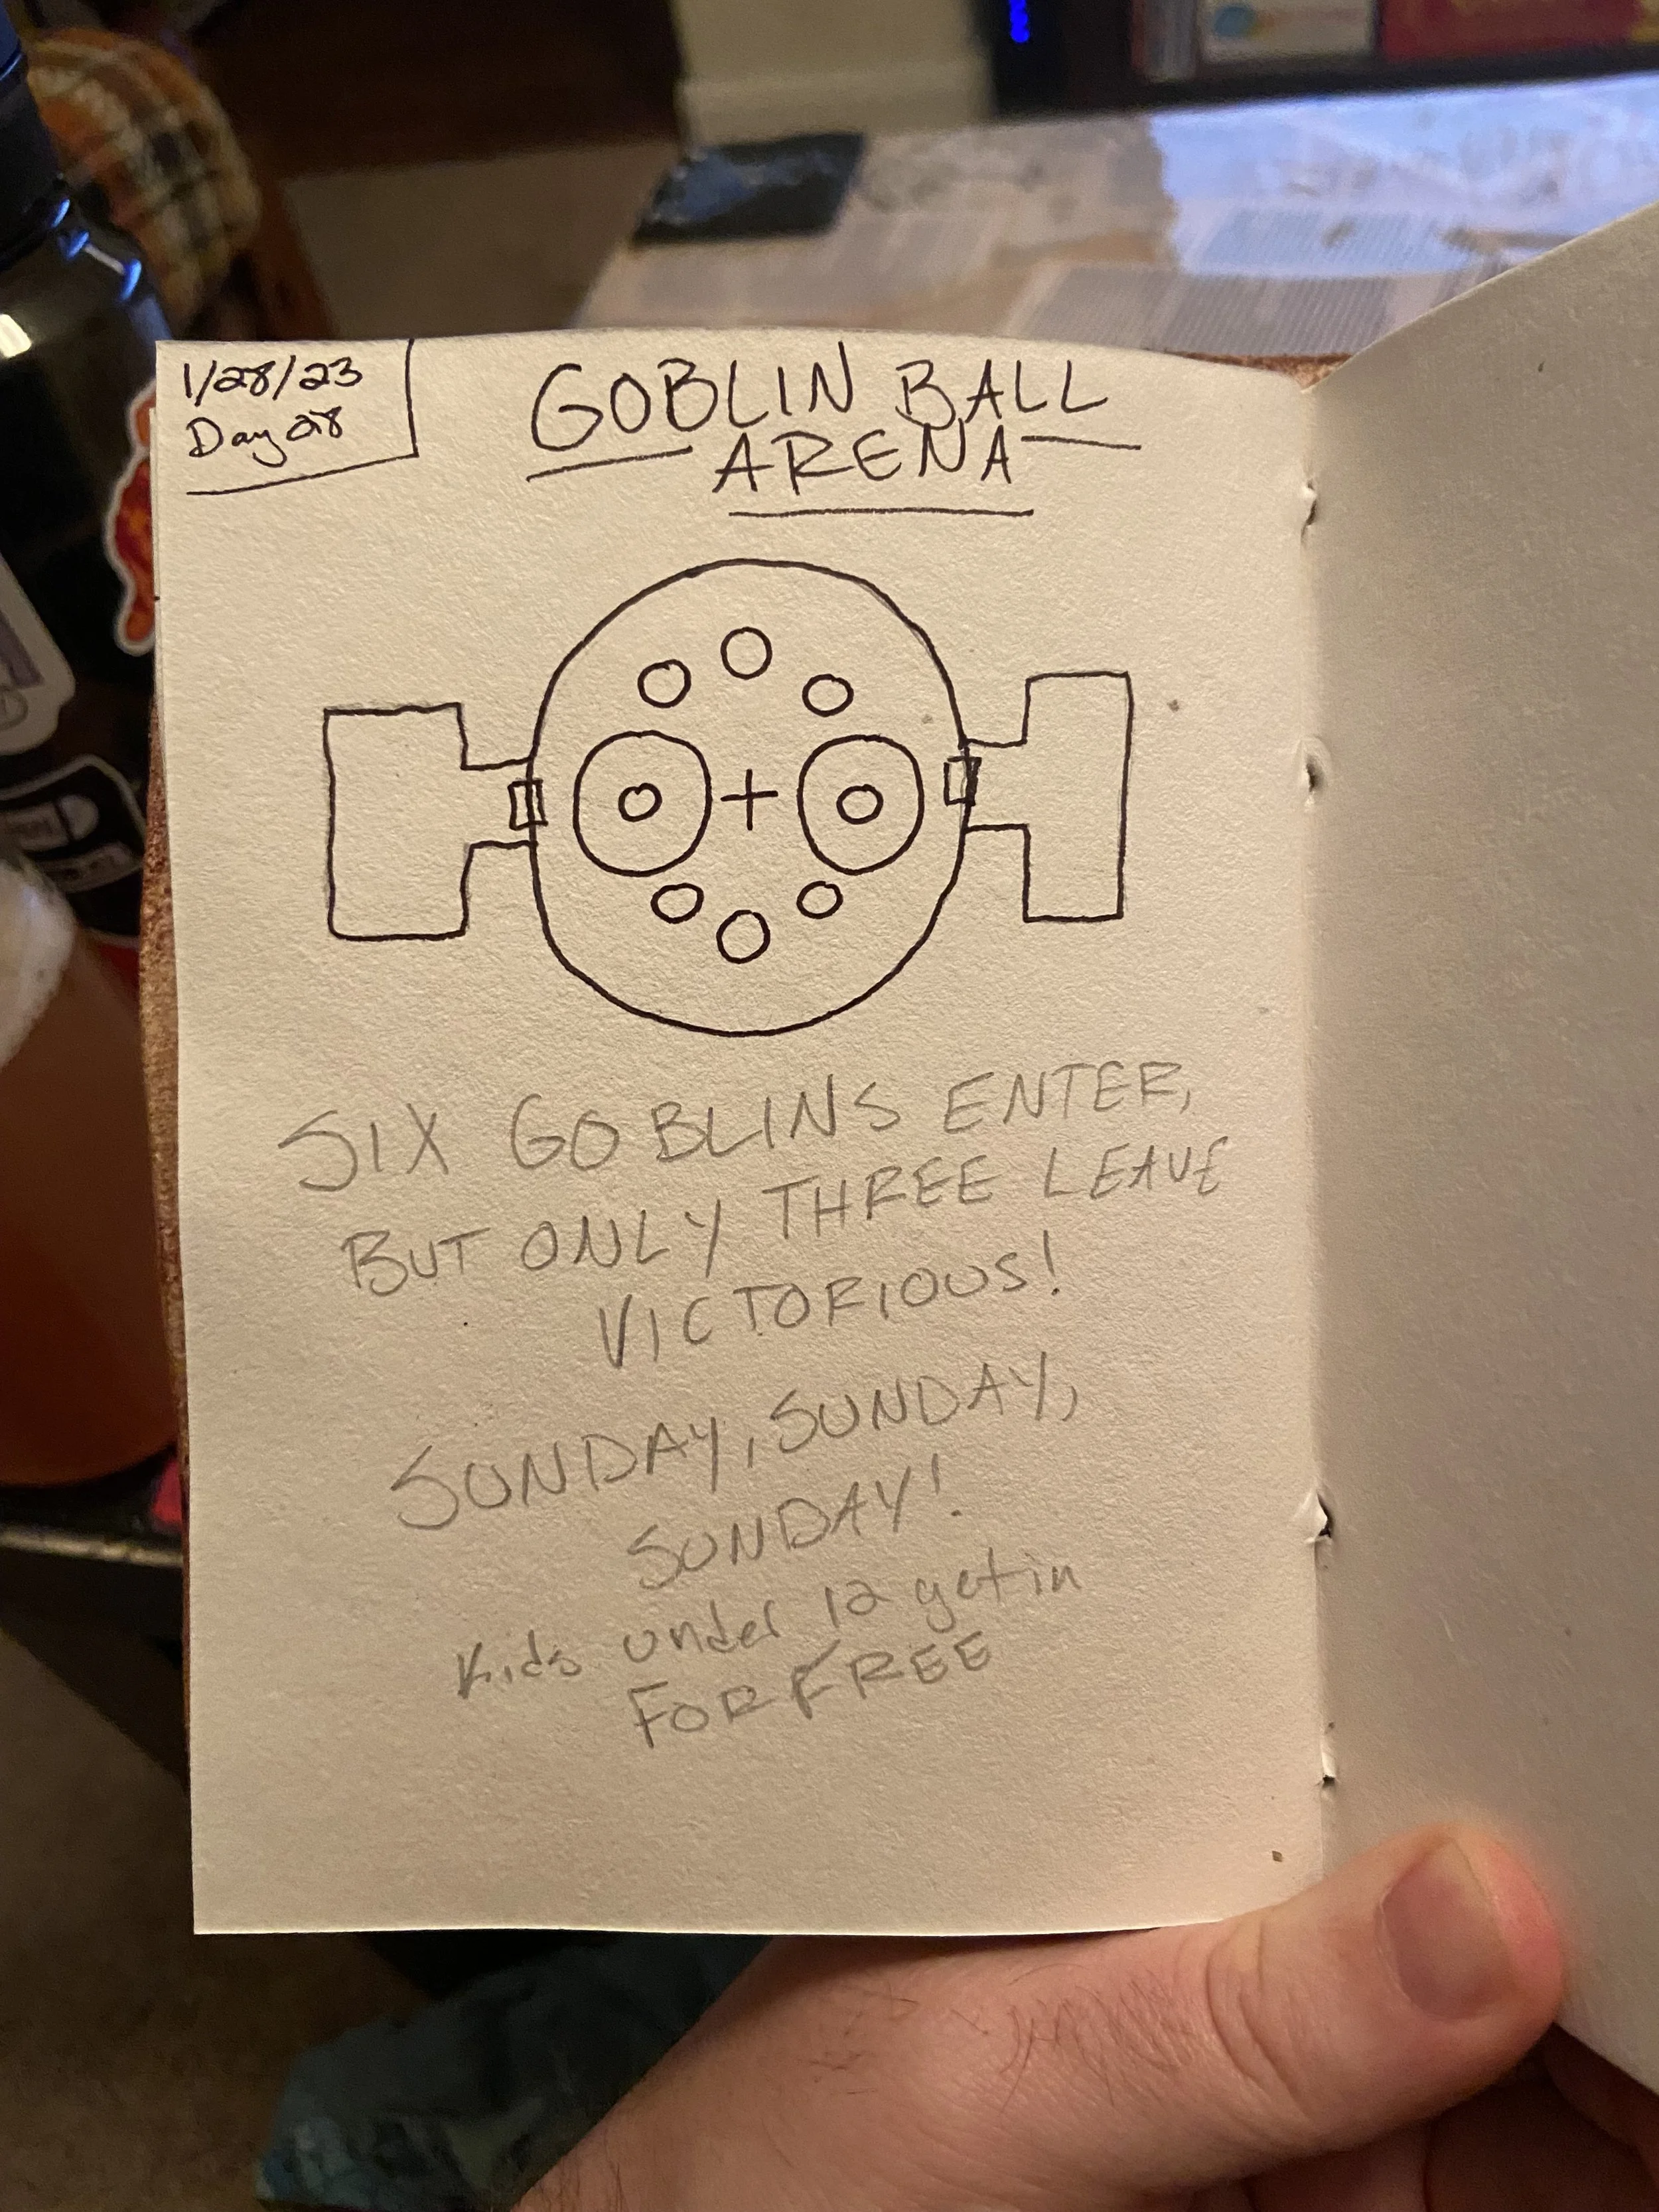 1/28/23
Day 28
GOBLIN BALL
ARENA
SIX GOBLINS ENTER,
BUT ONLY THREE LEAVE
VICTORIOUS!
SUNDAY, SUNDAY,
SUNDAY!
Kids under 12 get in
FOR FREE